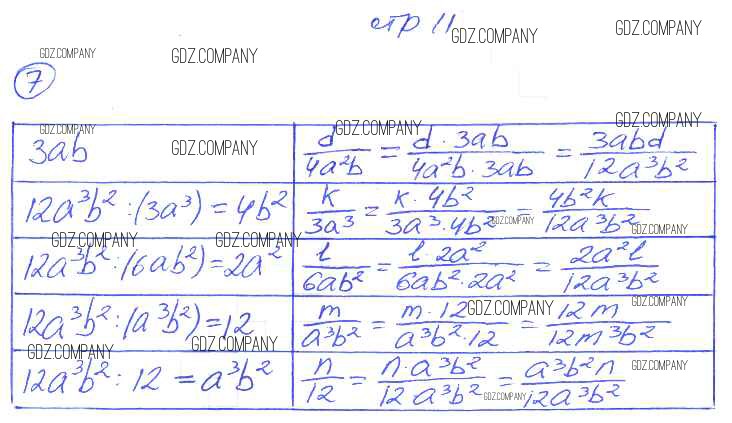 стр 11
GDZ.COMPANY GDZ.COMPANY
GDZ.COMPANY GDZ.COMPANY
7
GDZ.COMPANY GDZ.COMPANY GDZ.COMPANY
3ab GDZ.COMPANY d/4a²b = d · 3ab/4a²b · 3ab = 3abd/12a³b²
12a³b² : (3a³) = 4b² k/3a³ = k · 4b²/3a³ · 4b² = 4b²k/12a³b²
GDZ.COMPANY GDZ.COMPANY GDZ.COMPANY GDZ.COMPANY
12a³b² : (6ab²) = 2a² l/6ab² = l · 2a²/6ab² · 2a² = 2a²l/12a³b²
12a³b² : (a³b²) = 12 m/a³b² = m · 12/a³b² · 12 = 12m/12m³b²
GDZ.COMPANY GDZ.COMPANY GDZ.COMPANY GDZ.COMPANY
12a³b² : 12 = a³b² n/12 = n · a³b²/12 a³b² = a³b²n/12a³b²
GDZ.COMPANY GDZ.COMPANY